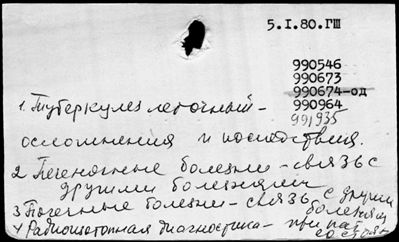 5.I.80.ГШ
990546
990673
990674-од
990964
991935
1. Туберкулез легочный -
осложнения и последствия.
2 Печеночные болезни - связь с
другими болезнями
3 Почечные болезни - связь с другими
болезнями
4 Радиоизотопная диагностика - при пат.
состоян